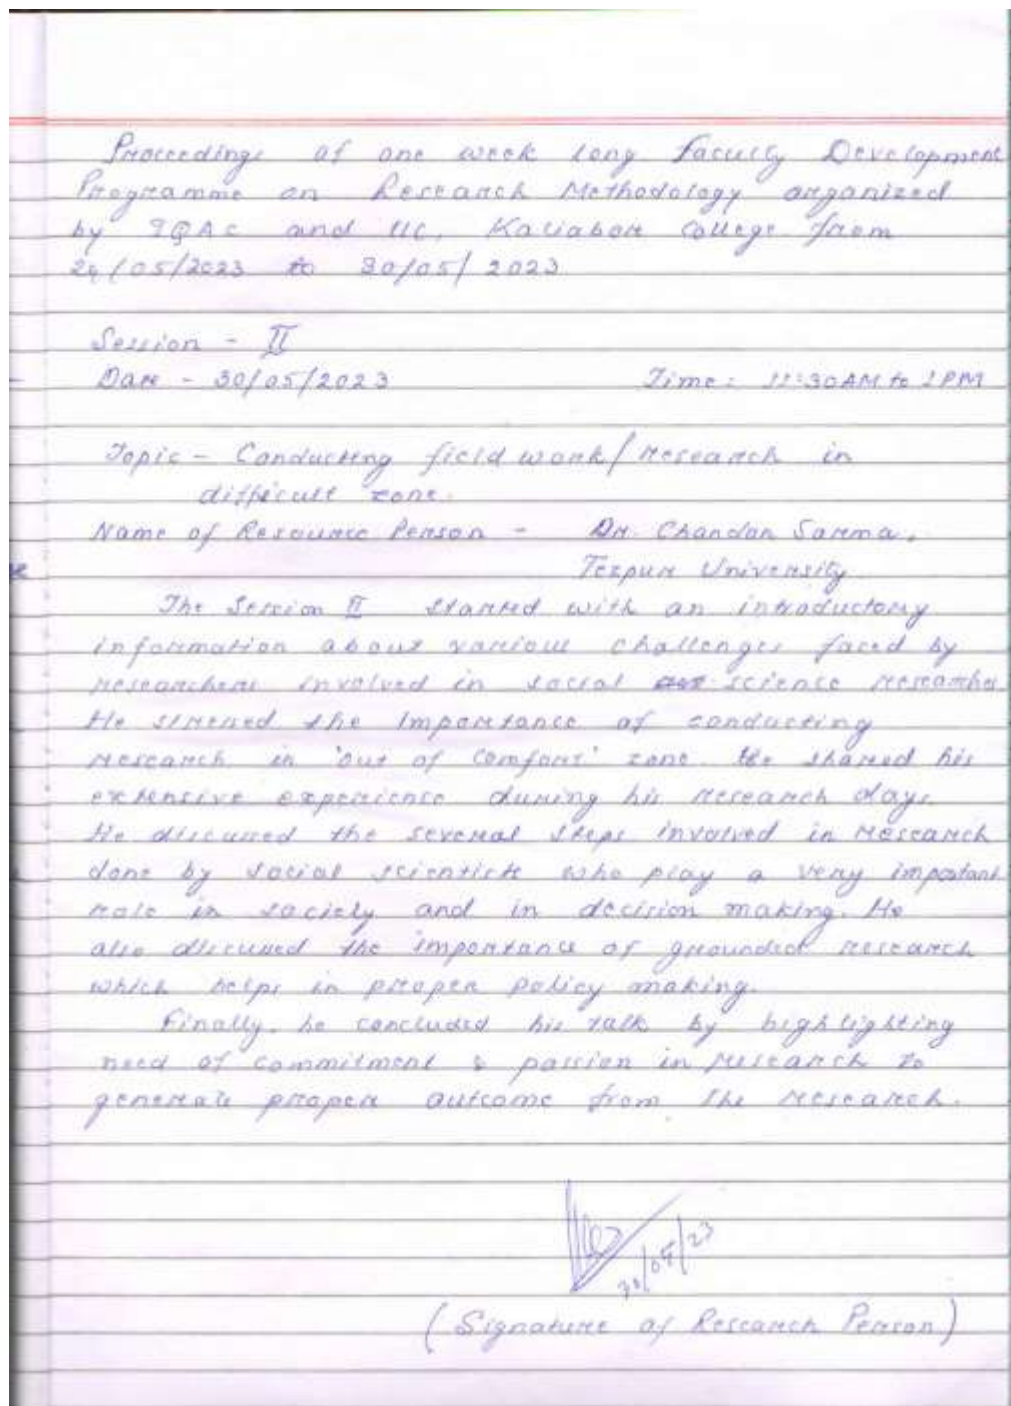 Proceedings of one week long Faculty Development
Programme on Research Methodology organized
by IQAC and IIC, Kaliabor College from
24/05/2023 to 30/05/2023
Session - II
Date - 30/05/2023 Time: 11:30AM to 1PM
Topic - Conducting field work/research in
difficult zone.
Name of Resource Person - Dr. Chandan Sarma,
Tezpur University
The Session II started with an introductory
information about various challenges faced by
researchers involved in social science researches.
He stressed the importance of conducting
research in 'out of comfort' zone. He shared his
extensive experience during his research days.
He discussed the several steps involved in research
done by social scientists who play a very important
role in society and in decision making. He
also discussed the importance of grounded research
which helps in proper policy making.
Finally, he concluded his talk by highlighting
need of commitment & passion in research to
generate proper outcome from the research.
30/05/23
(Signature of Research Person)